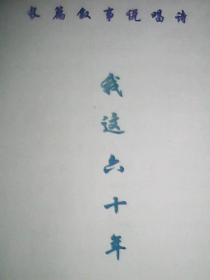 长篇叙事说唱诗
我这六十年